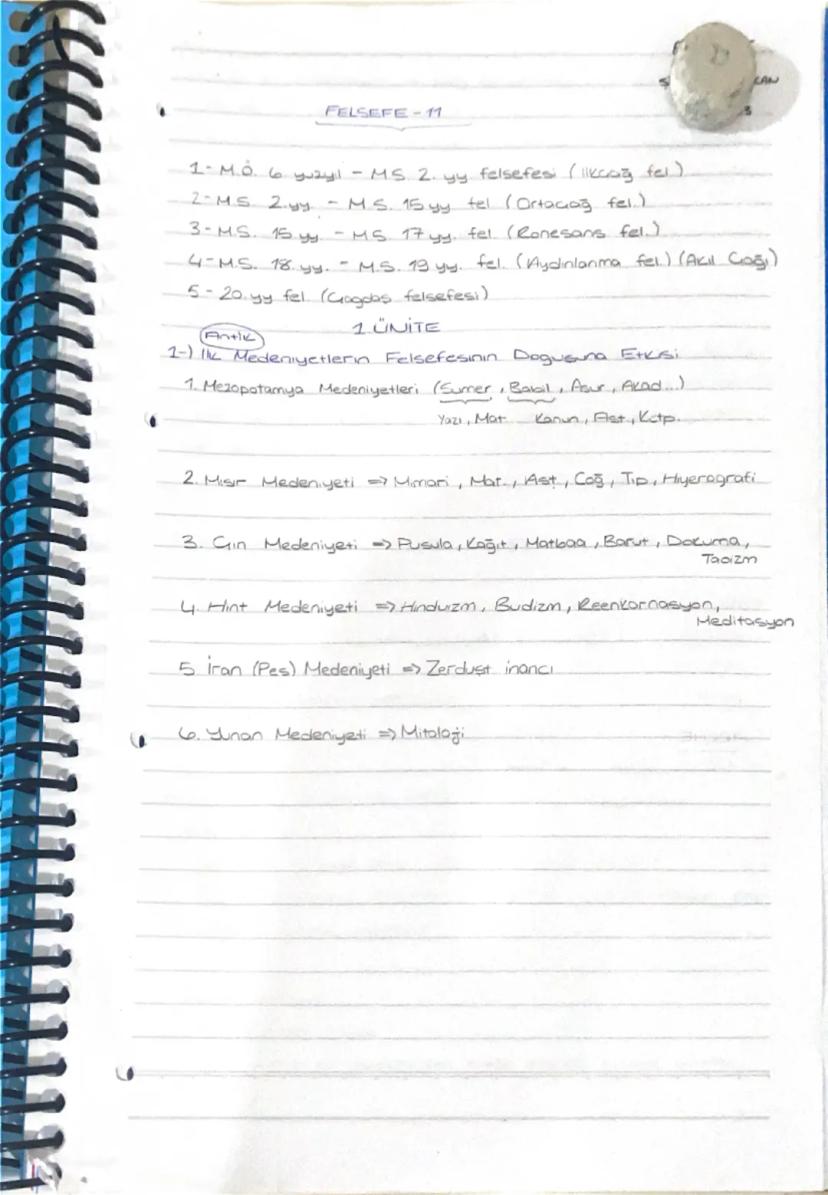 FELSEFE - 11
1- M.Ö. 6 yüzyıl - MS. 2. yy felsefesi (ilkçağ fel)
2- M.S. 2.yy. - M.S. 15 yy fel (Ortaçağ fel.)
3- M.S. 15 yy. - M.S. 17 yy. fel. (Rönesans fel.)
4- M.S. 18. yy. - M.S. 19 yy. fel. (Aydınlanma fel.) (Akıl Çağı)
5 - 20. yy fel. (Çağdaş felsefesi)
1. ÜNİTE
Antik
1-) İlk Medeniyetlerin Felsefesinin Doğusuna Etkisi
1. Mezopotamya Medeniyetleri (Sümer, Babil, Asur, Akad...)
Yazı, Mat. Kanun, Ast., Kütp.
2. Mısır Medeniyeti => Mimari, Mat., Ast., Coğ, Tıp, Hiyerografi
3. Çin Medeniyeti => Pusula, Kağıt, Matbaa, Barut, Dokuma,
Taoizm
4. Hint Medeniyeti => Hinduizm, Budizm, Reenkarnasyon,
Meditasyon
5. İran (Pes) Medeniyeti => Zerdüşt inancı
6. Yunan Medeniyeti => Mitoloji